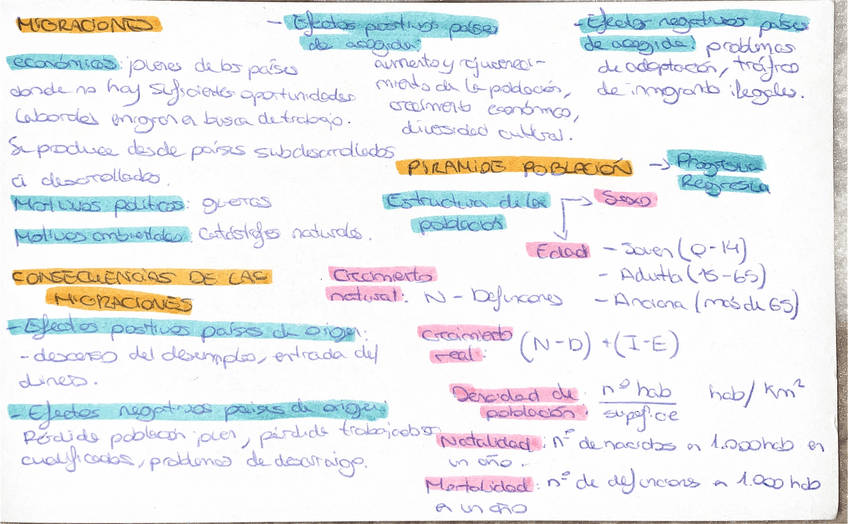 MIGRACIONES
económicas: jovenes de los países
donde no hay suficientes oportunidades
laborales emigran en busca de trabajo.
Se produce desde países subdesarrollados
a desarrollados.
Motivos políticos: guerras
Motivos ambientales: Catástrofes naturales.
CONSECUENCIAS DE LAS
MIGRACIONES
- Efectos positivos países de origen:
- descenso del desempleo, entrada del
dinero.
- Efectos negativos países de origen:
Pérdida población joven, pérdida trabajadores
cualificados, problemas de desarraigo.
- Efectos positivos países
de acogida:
aumento y rejuveneci-
miento de la población,
crecimiento económico,
diversidad cultural.
- Efectos negativos países
de acogida: problemas
de adaptación, tráfico
de inmigrants ilegales.
PIRAMIDE POBLACIÓN → Progresiva
Regresiva
Estructura de la → Sexo
población
Edad - Joven (0-14)
- Adulta (15-65)
- Anciana (más de 65)
Crecimiento
natural: N - Defunciones
Crecimiento
real: (N-D) + (I-E)
Densidad de nº hab hab/Km²
población: supefice
Natalidad: nº de nacidos en 1.000 hab en
un año.
Mortalidad: nº de defuncions en 1.000 hab
en un año